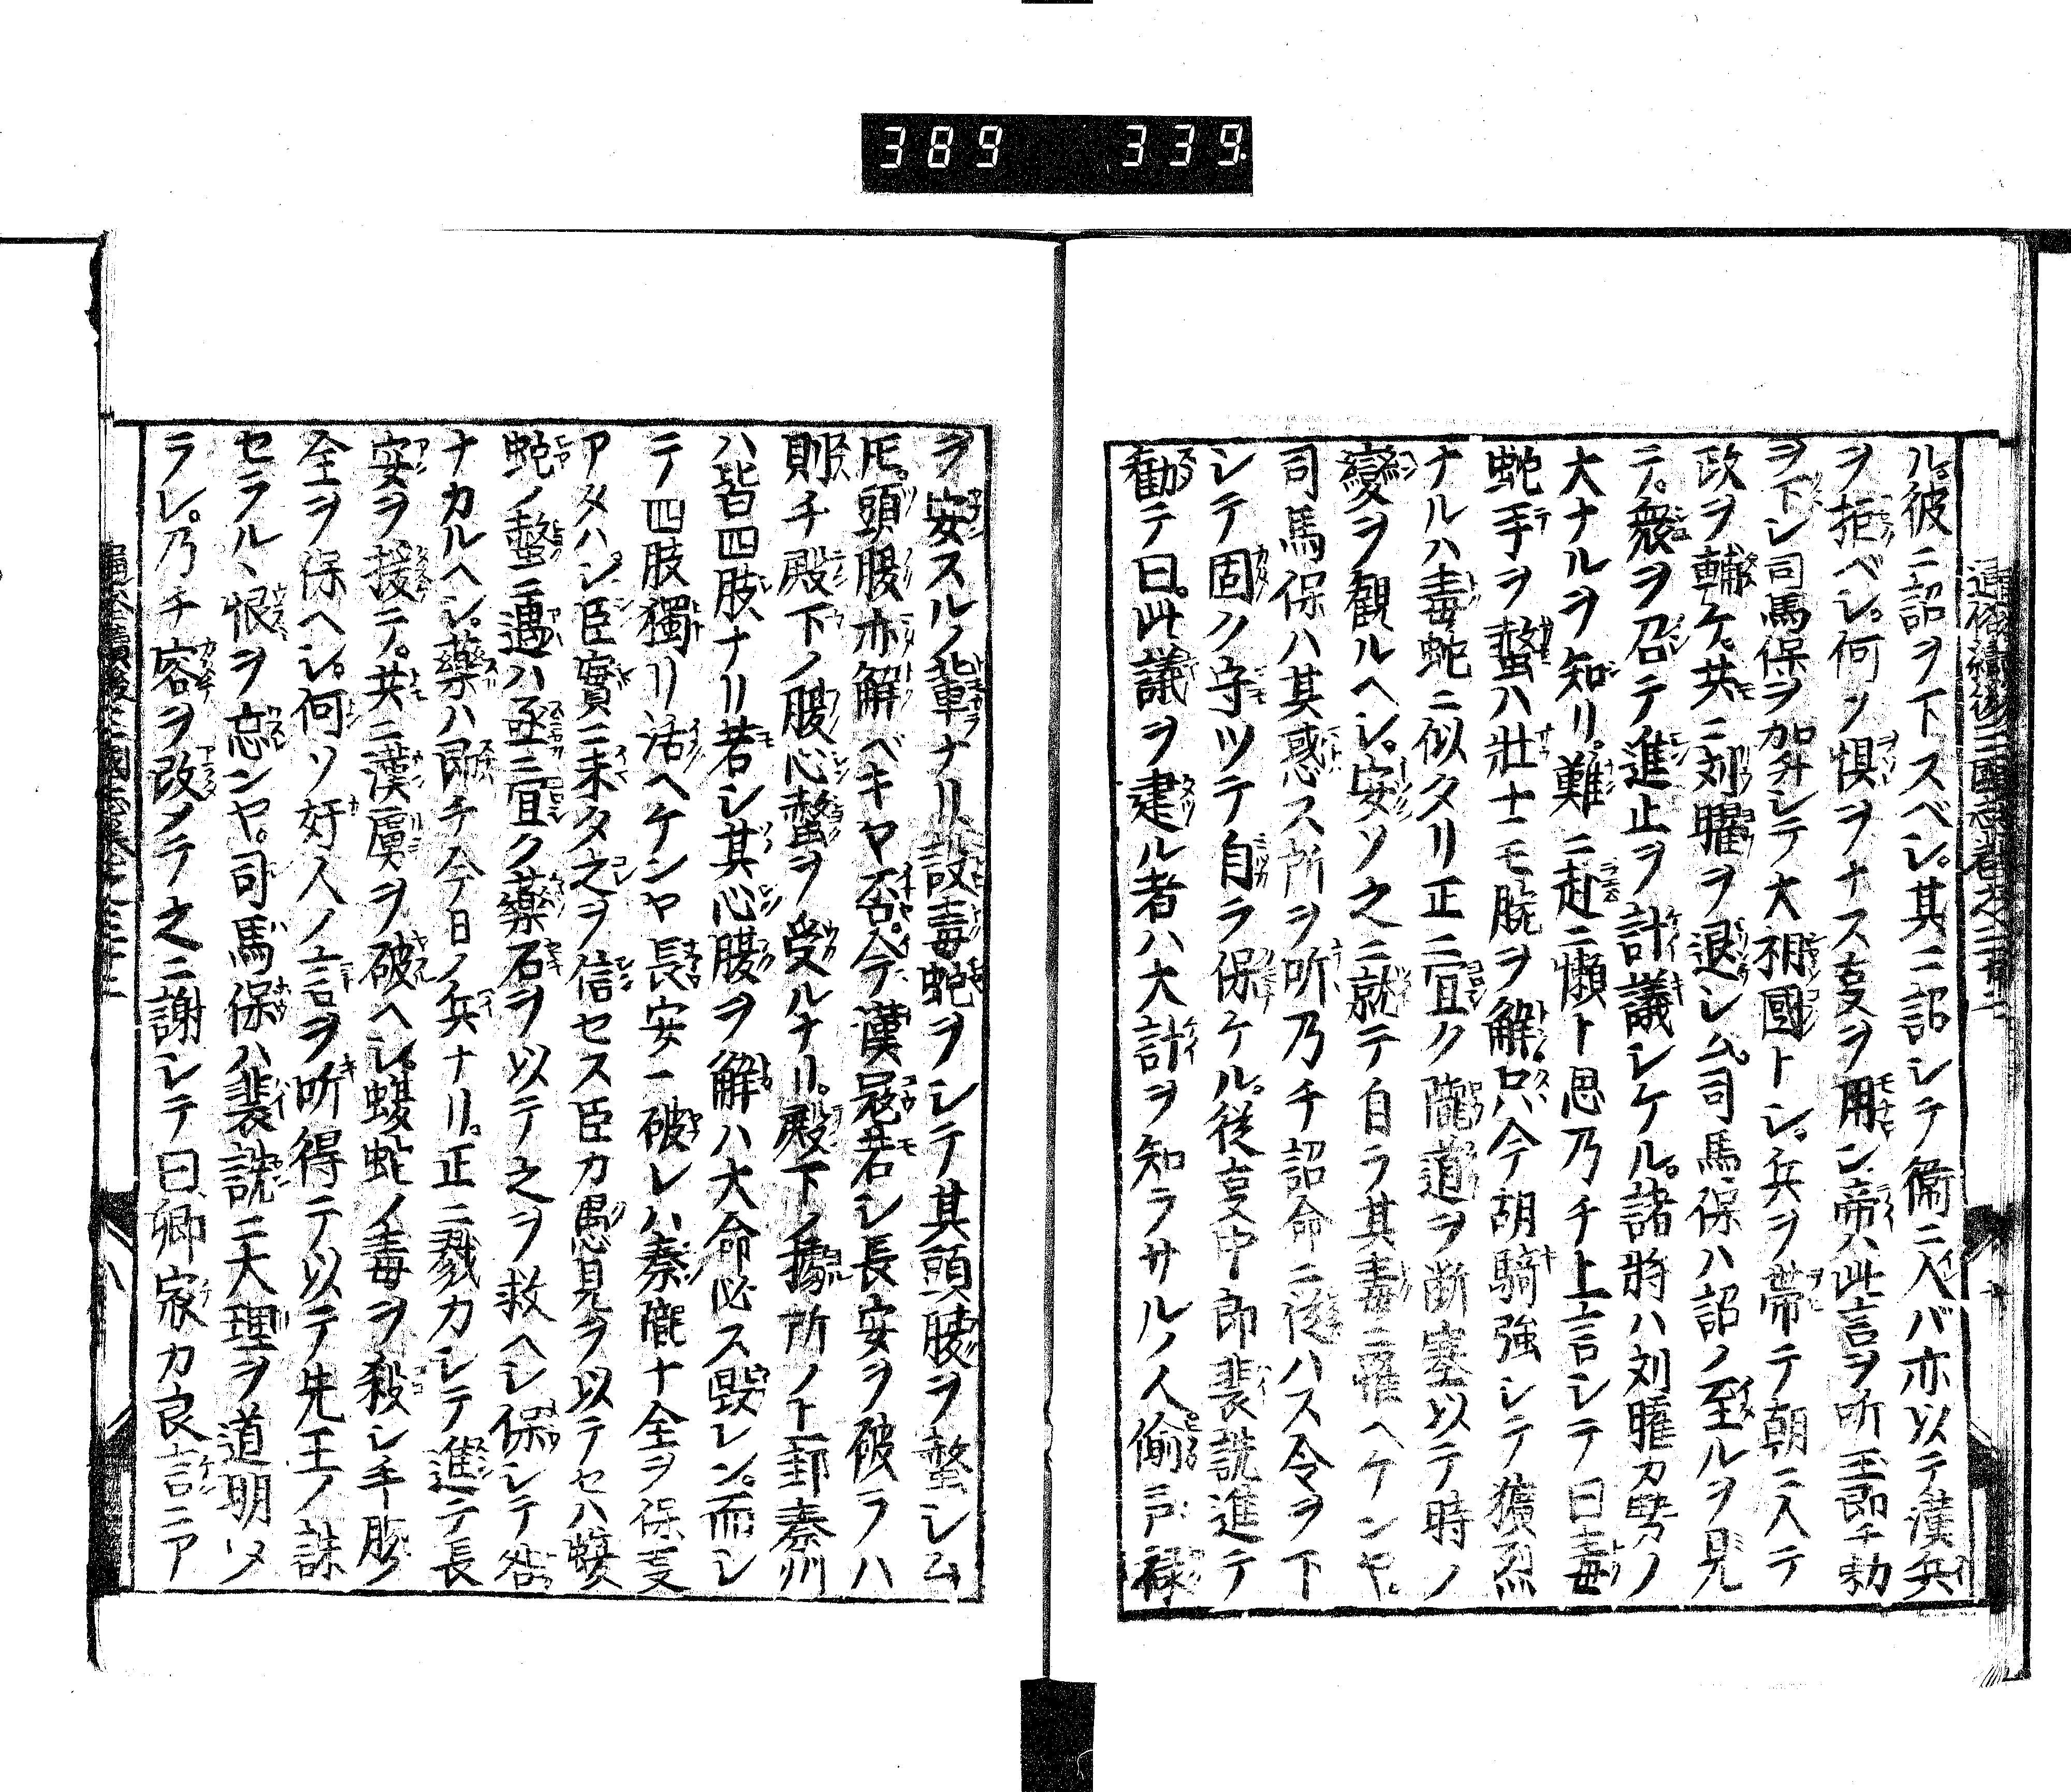 389 339
ル。彼ニ詔ヲ下スベシ。其ニ詔シテ衛ニ入バ亦以テ漢兵
ヲ拒ベシ。何ソ惧ヲナス𫝆ヲ用ン。帝ハ此言ヲ听玉即チ勅
ヲ下シ司馬保ヲ加升シテ大相國トシ。兵ヲ帯テ朝ニ入テ
政ヲ輔ケ。共ニ刘曜ヲ退シム。司馬保ハ詔ノ至ルヲ見
テ。衆ヲ召テ進止ヲ計議シケル。諸將ハ刘曜カ勢ノ
大ナルヲ知リ。難ニ赴ニ懶ト思乃チ上言シテ曰毒
蛇手ヲ螫ハ壮士モ腕ヲ解。只今胡騎強シテ獷烈
ナルハ毒蛇ニ似タリ正ニ宜ク隴道ヲ断塞以テ時ノ
變ヲ観ルヘシ。安ソ之ニ就テ自ラ其毒ニ罹ヘケンヤ。
司馬保ハ其惑ス所ヲ听乃チ詔命ニ從ハス令ヲ下
シテ固ク守ツテ自ラ保ケル。従𫝆中郎裴詵進テ
勧テ曰。此議ヲ建ル者ハ大計ヲ知ラサルノ人偷ニ戸禄
ヲ安スルノ輩ナリ設毒蛇ヲシテ其頭腰ヲ螫シム
厇。頭腰亦解ベキヤ否。今漢冦若シ長安ヲ破ラハ
則チ殿下ノ腹心螫ヲ受ルナリ。殿下ノ據所ノ上邽秦州
ハ皆四肢ナリ若シ其心腹ヲ解ハ大命必ス毀レン。而シ
テ四肢獨リ活ヘケンヤ長安一破レハ秦隴ナ全ヲ保𫝆
アタハシ臣實ニ未タ之ヲ信セス臣カ愚見ヲ以テセハ蝮
蛇ノ螫ニ遇ハ亟ニ宜ク藥石ヲ以テ之ヲ救ヘシ保シテ咎
ナカルヘシ。藥ハ即チ今日ノ兵ナリ。正ニ戮力シテ進テ長
安ヲ援テ。共ニ漢虜ヲ破ヘシ。蝮蛇ノ毒ヲ殺シ手腕
全ヲ保ヘシ。何ソ奸人ノ言ヲ听得テ以テ先王ノ誅
セラルヽ恨ヲ忘ンヤ。司馬保ハ裴詵ニ大理ヲ道明ソメ
ラレ。乃チ容ヲ改メテ之ニ謝シテ曰卿家カ良言ニア